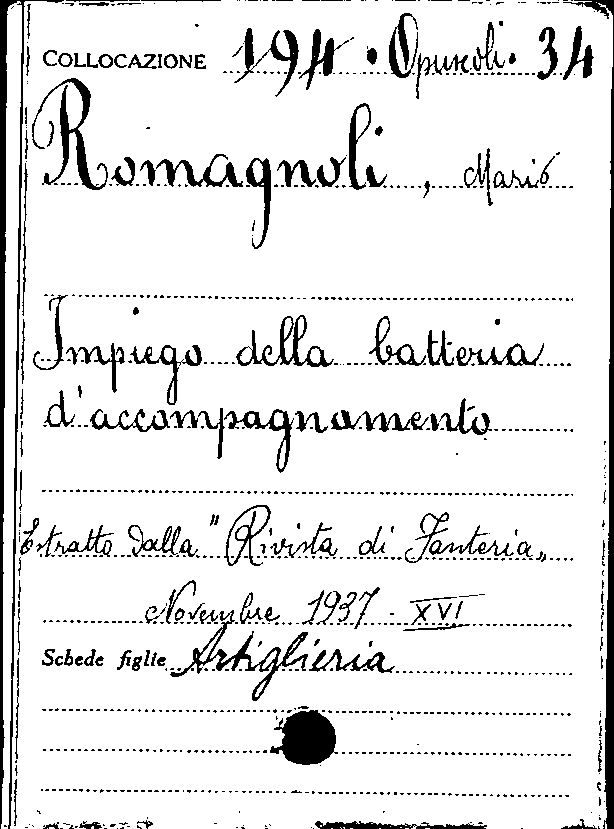 COLLOCAZIONE 194 · Opuscoli · 34
Romagnoli, Mario
Impiego della batteria
d'accompagnamento
Estratto dalla "Rivista di Fanteria„
Novembre 1937 - XVI
Schede figlie Artiglieria